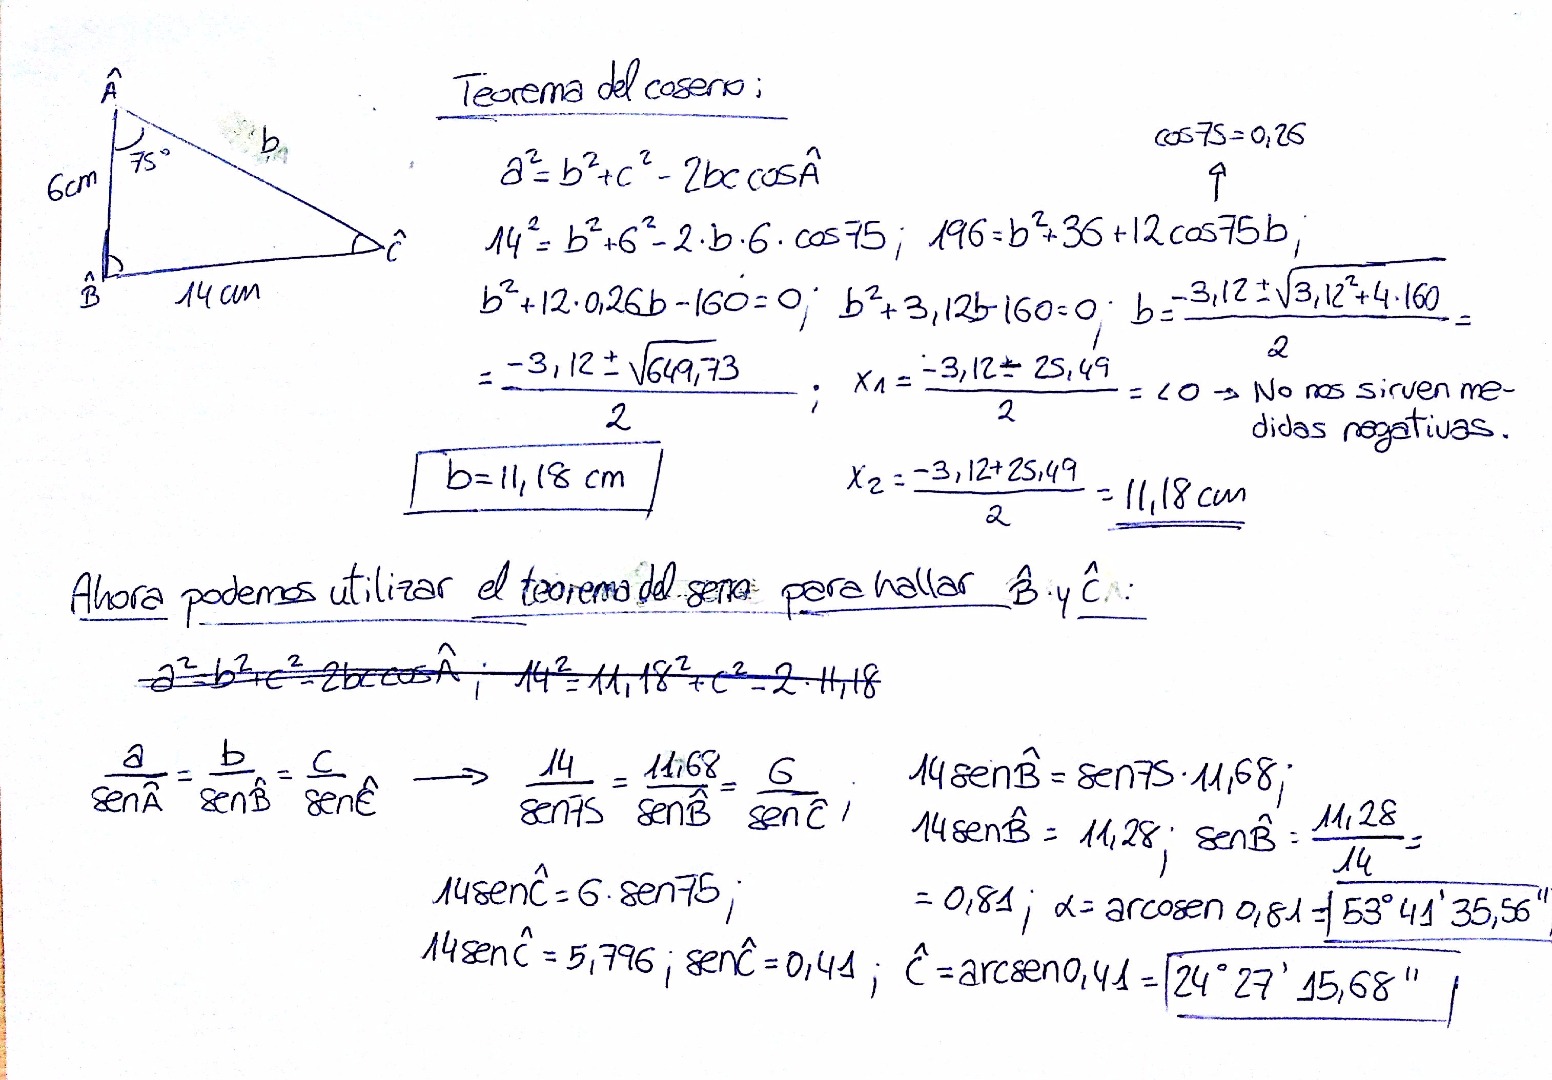 Teorema del coseno:
Â
b
75°
6cm
Ĉ
B̂
14 cm
cos75=0,26
↑
a²=b²+c²-2bc cosÂ
14²=b²+6²-2·b·6·cos75; 196=b²+36+12cos75b;
b²+12·0,26b-160=0; b²+3,12b-160=0; b=(-3,12±√(3,12²+4·160))/2=
=(-3,12±√649,73)/2; x1=(-3,12±25,49)/2=<0→No nos sirven me-
didas negativas.
b=11,18 cm
x2=(-3,12+25,49)/2=11,18 cm
Ahora podemos utilizar el teorema del seno para hallar B̂ y Ĉ:
a²=b²+c²-2bc cosÂ; 14²=11,18²+c²-2·11,18
a/senÂ=b/senB̂=c/senĈ → 14/sen75=11,68/senB̂=6/senĈ; 14senB̂=sen75·11,68;
14senB̂=11,28; senB̂=11,28/14=
=0,81; α=arcosen 0,81=53°41'35,56"
14senĈ=6·sen75;
14senĈ=5,796; senĈ=0,41; Ĉ=arcsen0,41=24°27'15,68"